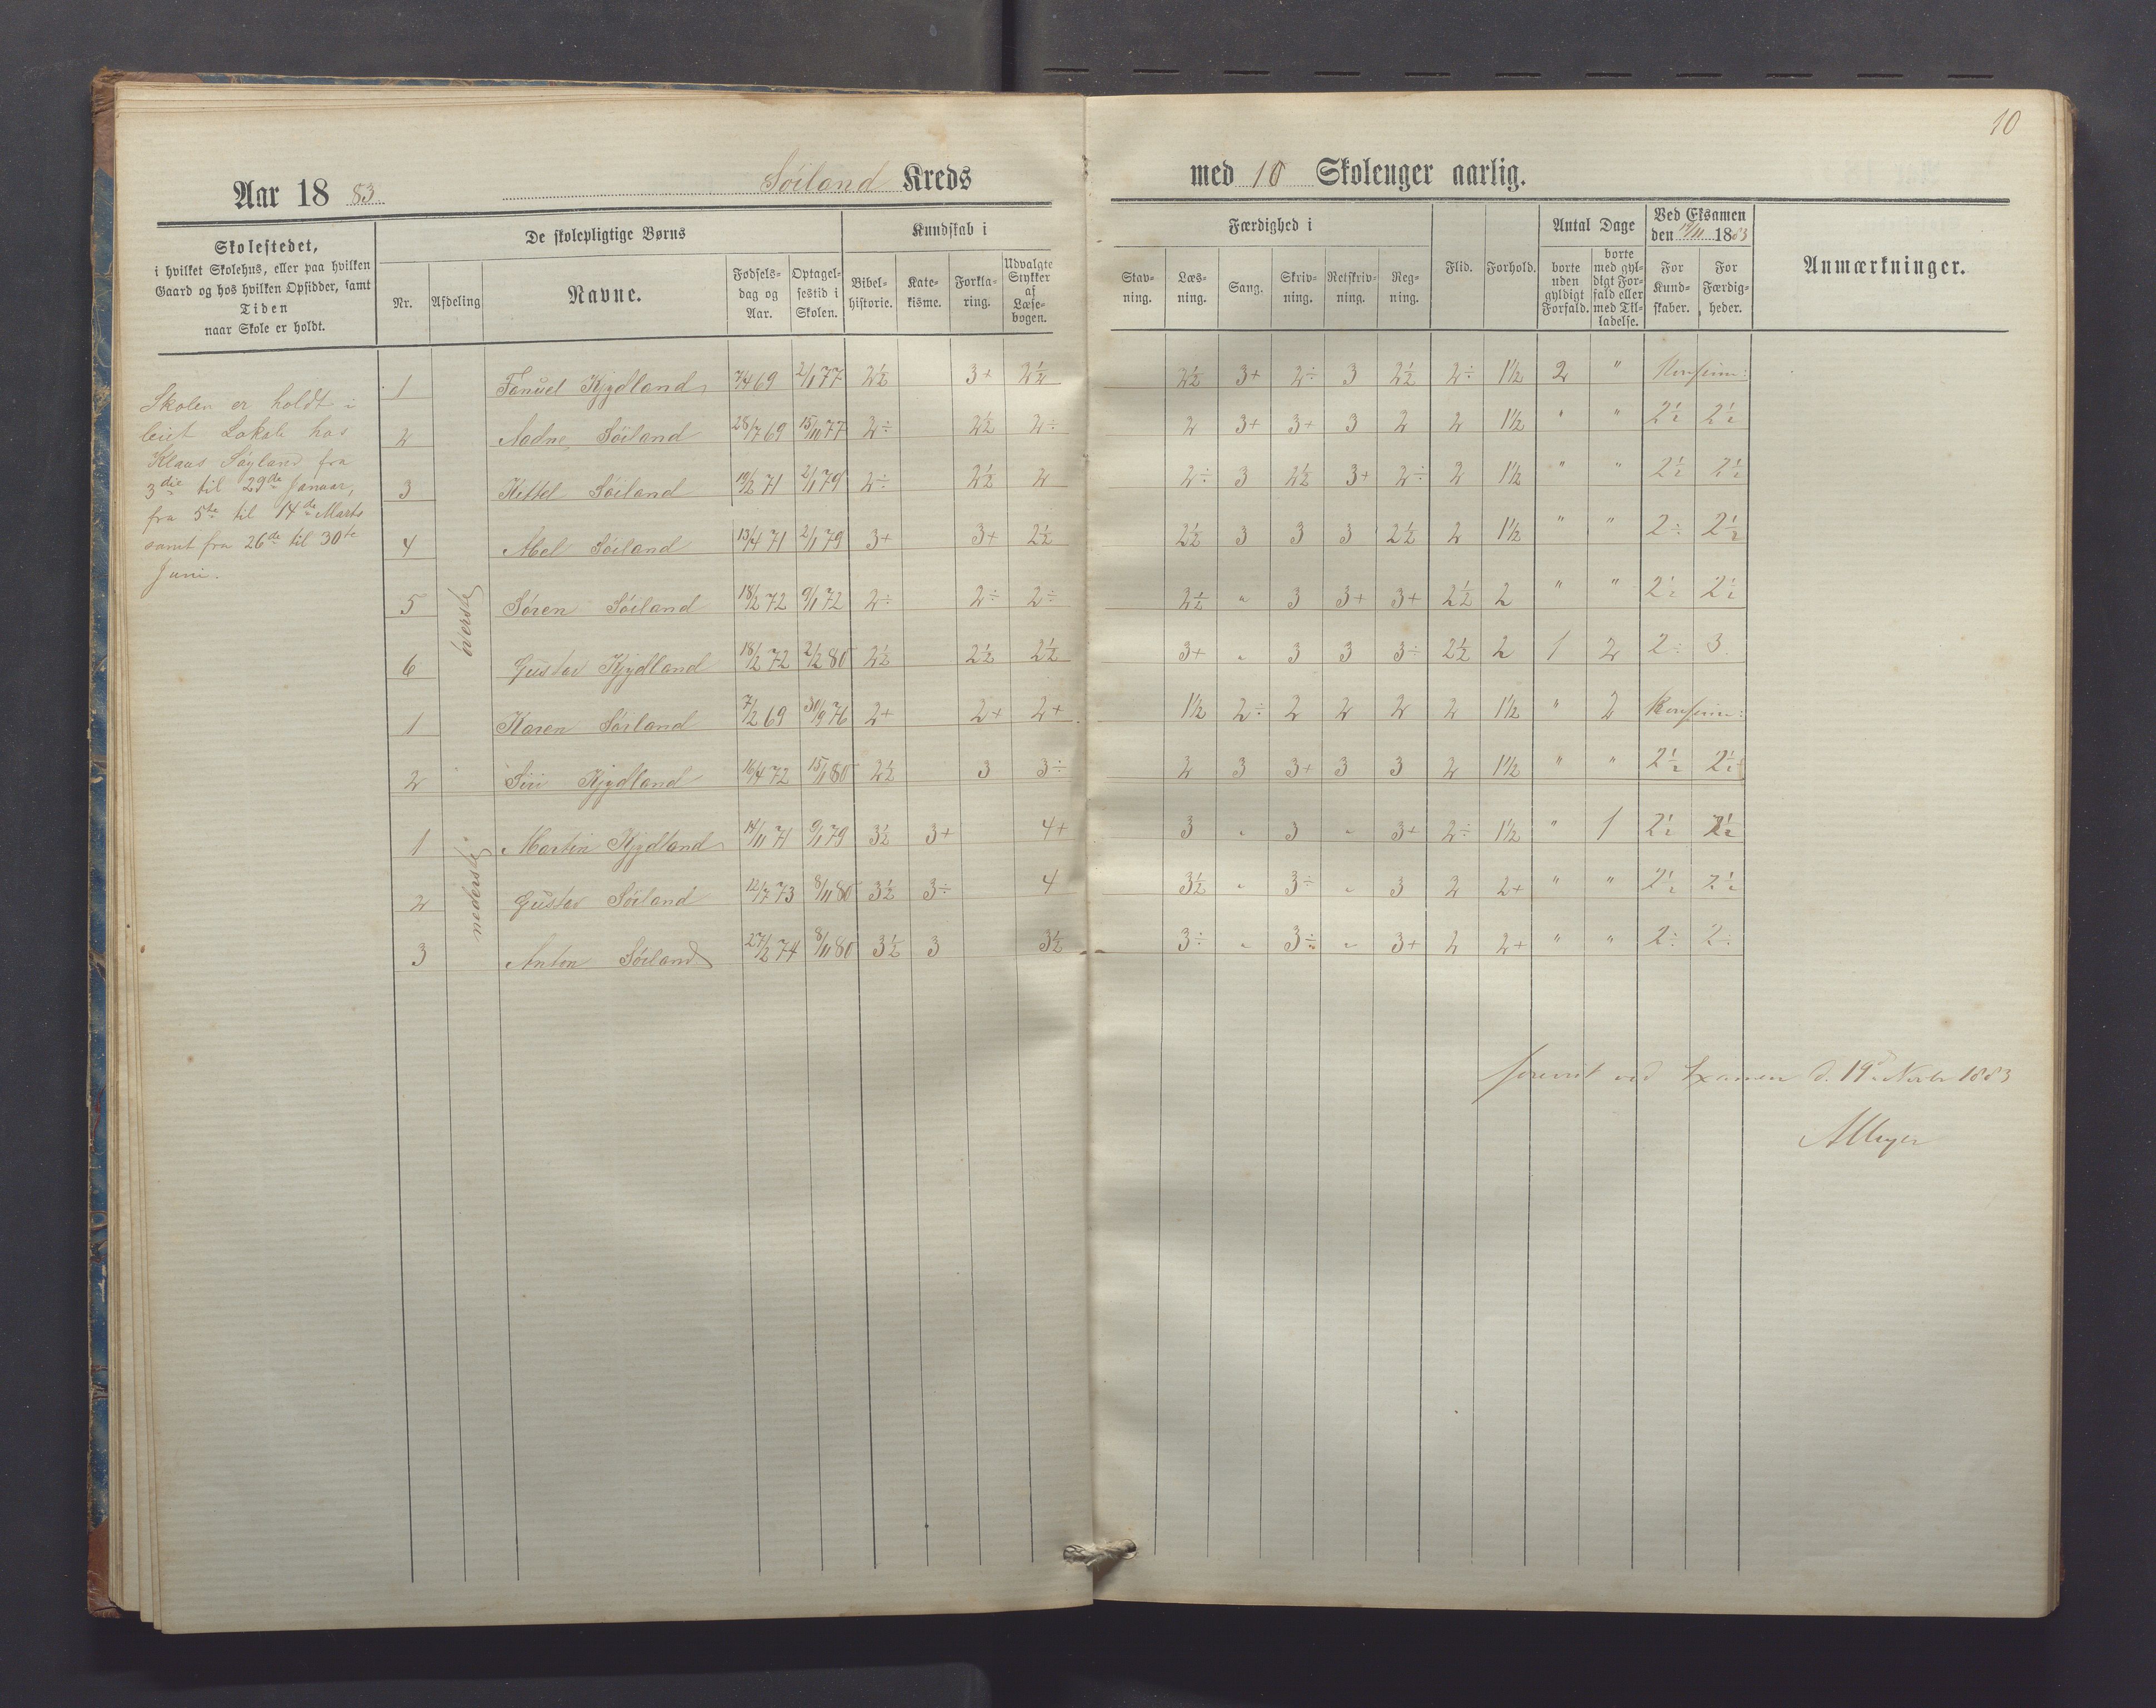 10
Aar 1883 Søiland Kreds med 10 Skoleuger aarlig.
Skolestedet,
i hvilket Skolehus, eller paa hvilken
Gaard og hos hvilken Opsidder, samt
Tiden
naar Skole er holdt.
De skolepligtige Børns
Nr. Afdeling Navne. Fødsels-dag og Aar. Optagel-sestid i Skolen.
Kundskab i
Bibel-historie. Kate-kisme. Forkla-ring. Udvalgte Stykker af Læse-bogen.
Færdighed i
Stav-ning. Læs-ning. Sang. Skriv-ning. Retskriv-ning. Reg-ning.
Flid. Forhold.
Antal Dage
borte uden gyldigt Forfald. borte med gyl-digt For-fald eller med Til-ladelse.
Ved Eksamen
den 19/11 1883
For Kund-skaber. For Færdig-heder.
Anmærkninger.
Skolen er holdt i
leiet Lokale hos
Klaus Søyland fra
3die til 29de Januar,
fra 5te til 14de Marts
samt fra 26de til 30te
Juni.
øverste
1 Fanuel Kjydland 7/4 69 2/1 77 2½ 3+ 2½ 2½ 3+ 2÷ 3 2½ 2÷ 1½ 2 " Konfirm:
2 Aadne Søiland 28/7 69 15/11 77 2÷ 2½ 2÷ 2 3+ 3+ 3 2 2 1½ " " 2½ 2½
3 Kittel Søiland 19/2 71 2/1 79 2÷ 2½ 2 2÷ 3 2½ 3+ 2÷ 2 1½ " " 2½ 2½
4 Abel Søiland 13/4 71 2/1 79 3+ 3+ 2½ 2½ 3 3 3 2½ 2 1½ " " 2÷ 2½
5 Søren Søiland 18/2 72 9/1 72 2÷ 2÷ 2÷ 2½ " 3 3+ 3+ 2½ 2 " " 2½ 2½
6 Gustav Kjydland 18/2 72 2/2 80 2½ 2½ 2½ 3+ " 3 3 3÷ 2½ 2 1 2 2÷ 3
1 Karen Søiland 7/2 69 30/9 76 2+ 2+ 2+ 1½ 2÷ 2 2 2 2 1½ " 2 Konfirm:
2 Siri Kjydland 16/4 72 15/1 80 2½ 3 3÷ 2 3 3+ 3 3 2 1½ " " 2½ 2½
nederste
1 Martin Kjydland 14/11 71 9/1 79 3½ 3+ 4+ 3 " 3 " 3+ 2÷ 1½ " 1 2½ 2½
2 Gustav Søiland 12/7 73 8/11 80 3½ 3÷ 4 3½ " 3÷ " 3 2 2+ " " 2½ 2½
3 Anton Søiland 27/2 74 8/11 80 3½ 3 3½ 3÷ " 3÷ " 3+ 2 2+ " " 2÷ 2÷
forevist ved Examen d. 19de Novbr 1883
AMeyer